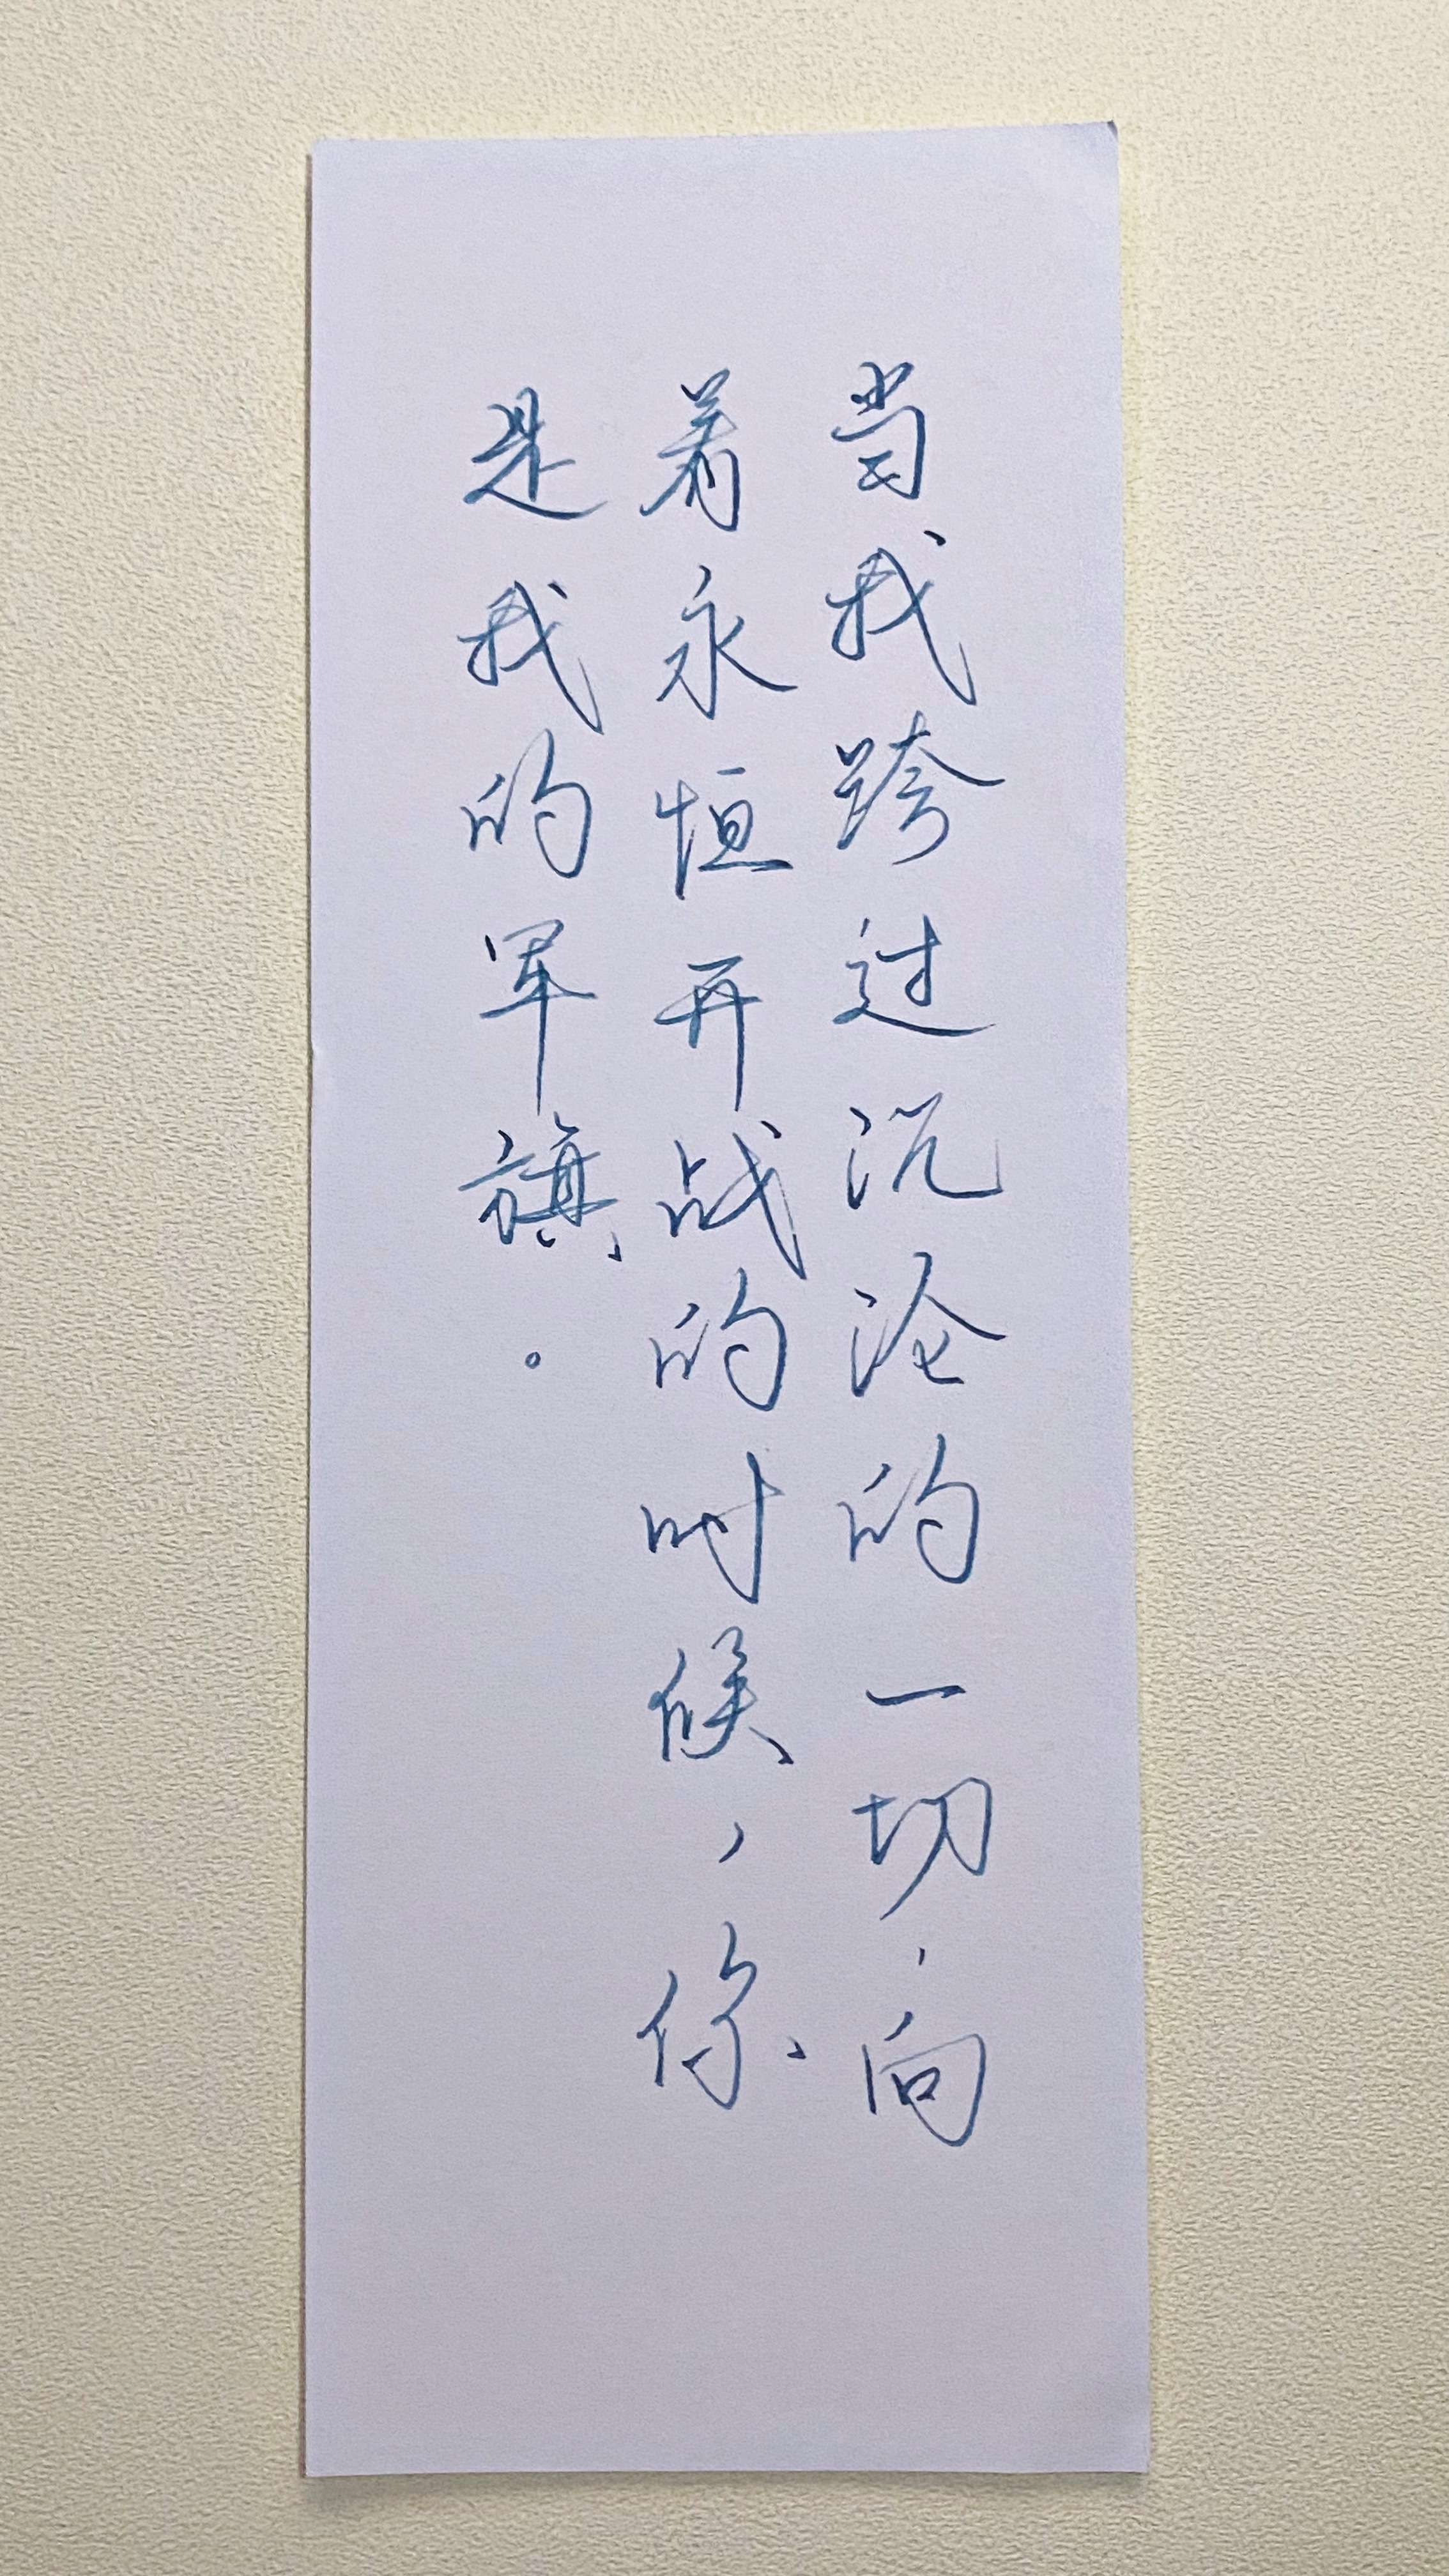 当我跨过沉沦的一切,向
着永恒开战的时候,你
是我的军旗。